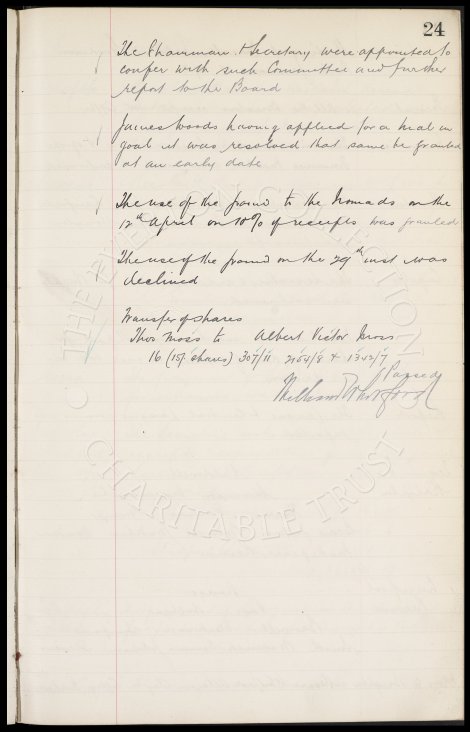 24
The Chairman & Secretary were appointed to
confer with such Committee and further
report to the Board
James Woods having applied for a trial in
goal it was resolved that same be granted
at an early date
The use of the ground to the Nomads on the
12th April on 10% of receipts was granted
The use of the ground on the 29th inst was
declined
Transfer of shares
Thos Moss to Albert Victor Moss
16 (15/ shares) 307/11 2164/8 & 1342/7
Passed
THE EVERTON COLLECTION
CHARITABLE TRUST